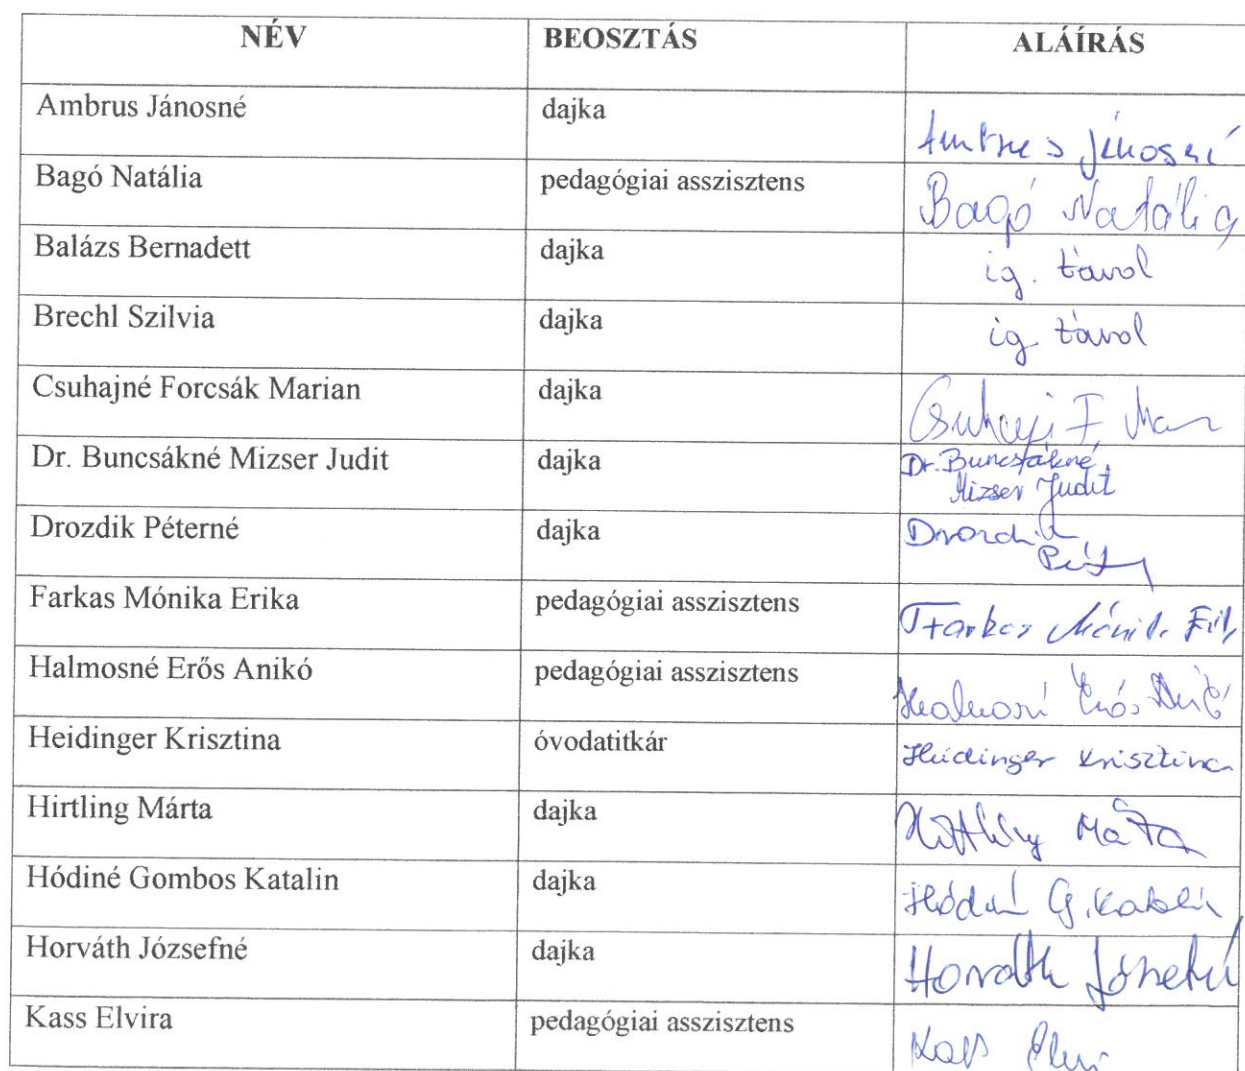 NÉV BEOSZTÁS ALÁÍRÁS
Ambrus Jánosné dajka Ambrus Jánosné
Bagó Natália pedagógiai asszisztens Bagó Natália
Balázs Bernadett dajka ig. távol
Brechl Szilvia dajka ig távol
Csuhajné Forcsák Marian dajka Csuhaji F. Mar
Dr. Buncsákné Mizser Judit dajka Dr. Buncsákné
Mizser Judit
Drozdik Péterné dajka Drozdik
Pét
Farkas Mónika Erika pedagógiai asszisztens Farkas Mónik. Eri
Halmosné Erős Anikó pedagógiai asszisztens Halmosné Erős Anikó
Heidinger Krisztina óvodatitkár Heidinger Krisztina
Hirtling Márta dajka Hirtling Márta
Hódiné Gombos Katalin dajka Hódiné G. Katalin
Horváth Józsefné dajka Horváth Józsefné
Kass Elvira pedagógiai asszisztens Kass Elvi